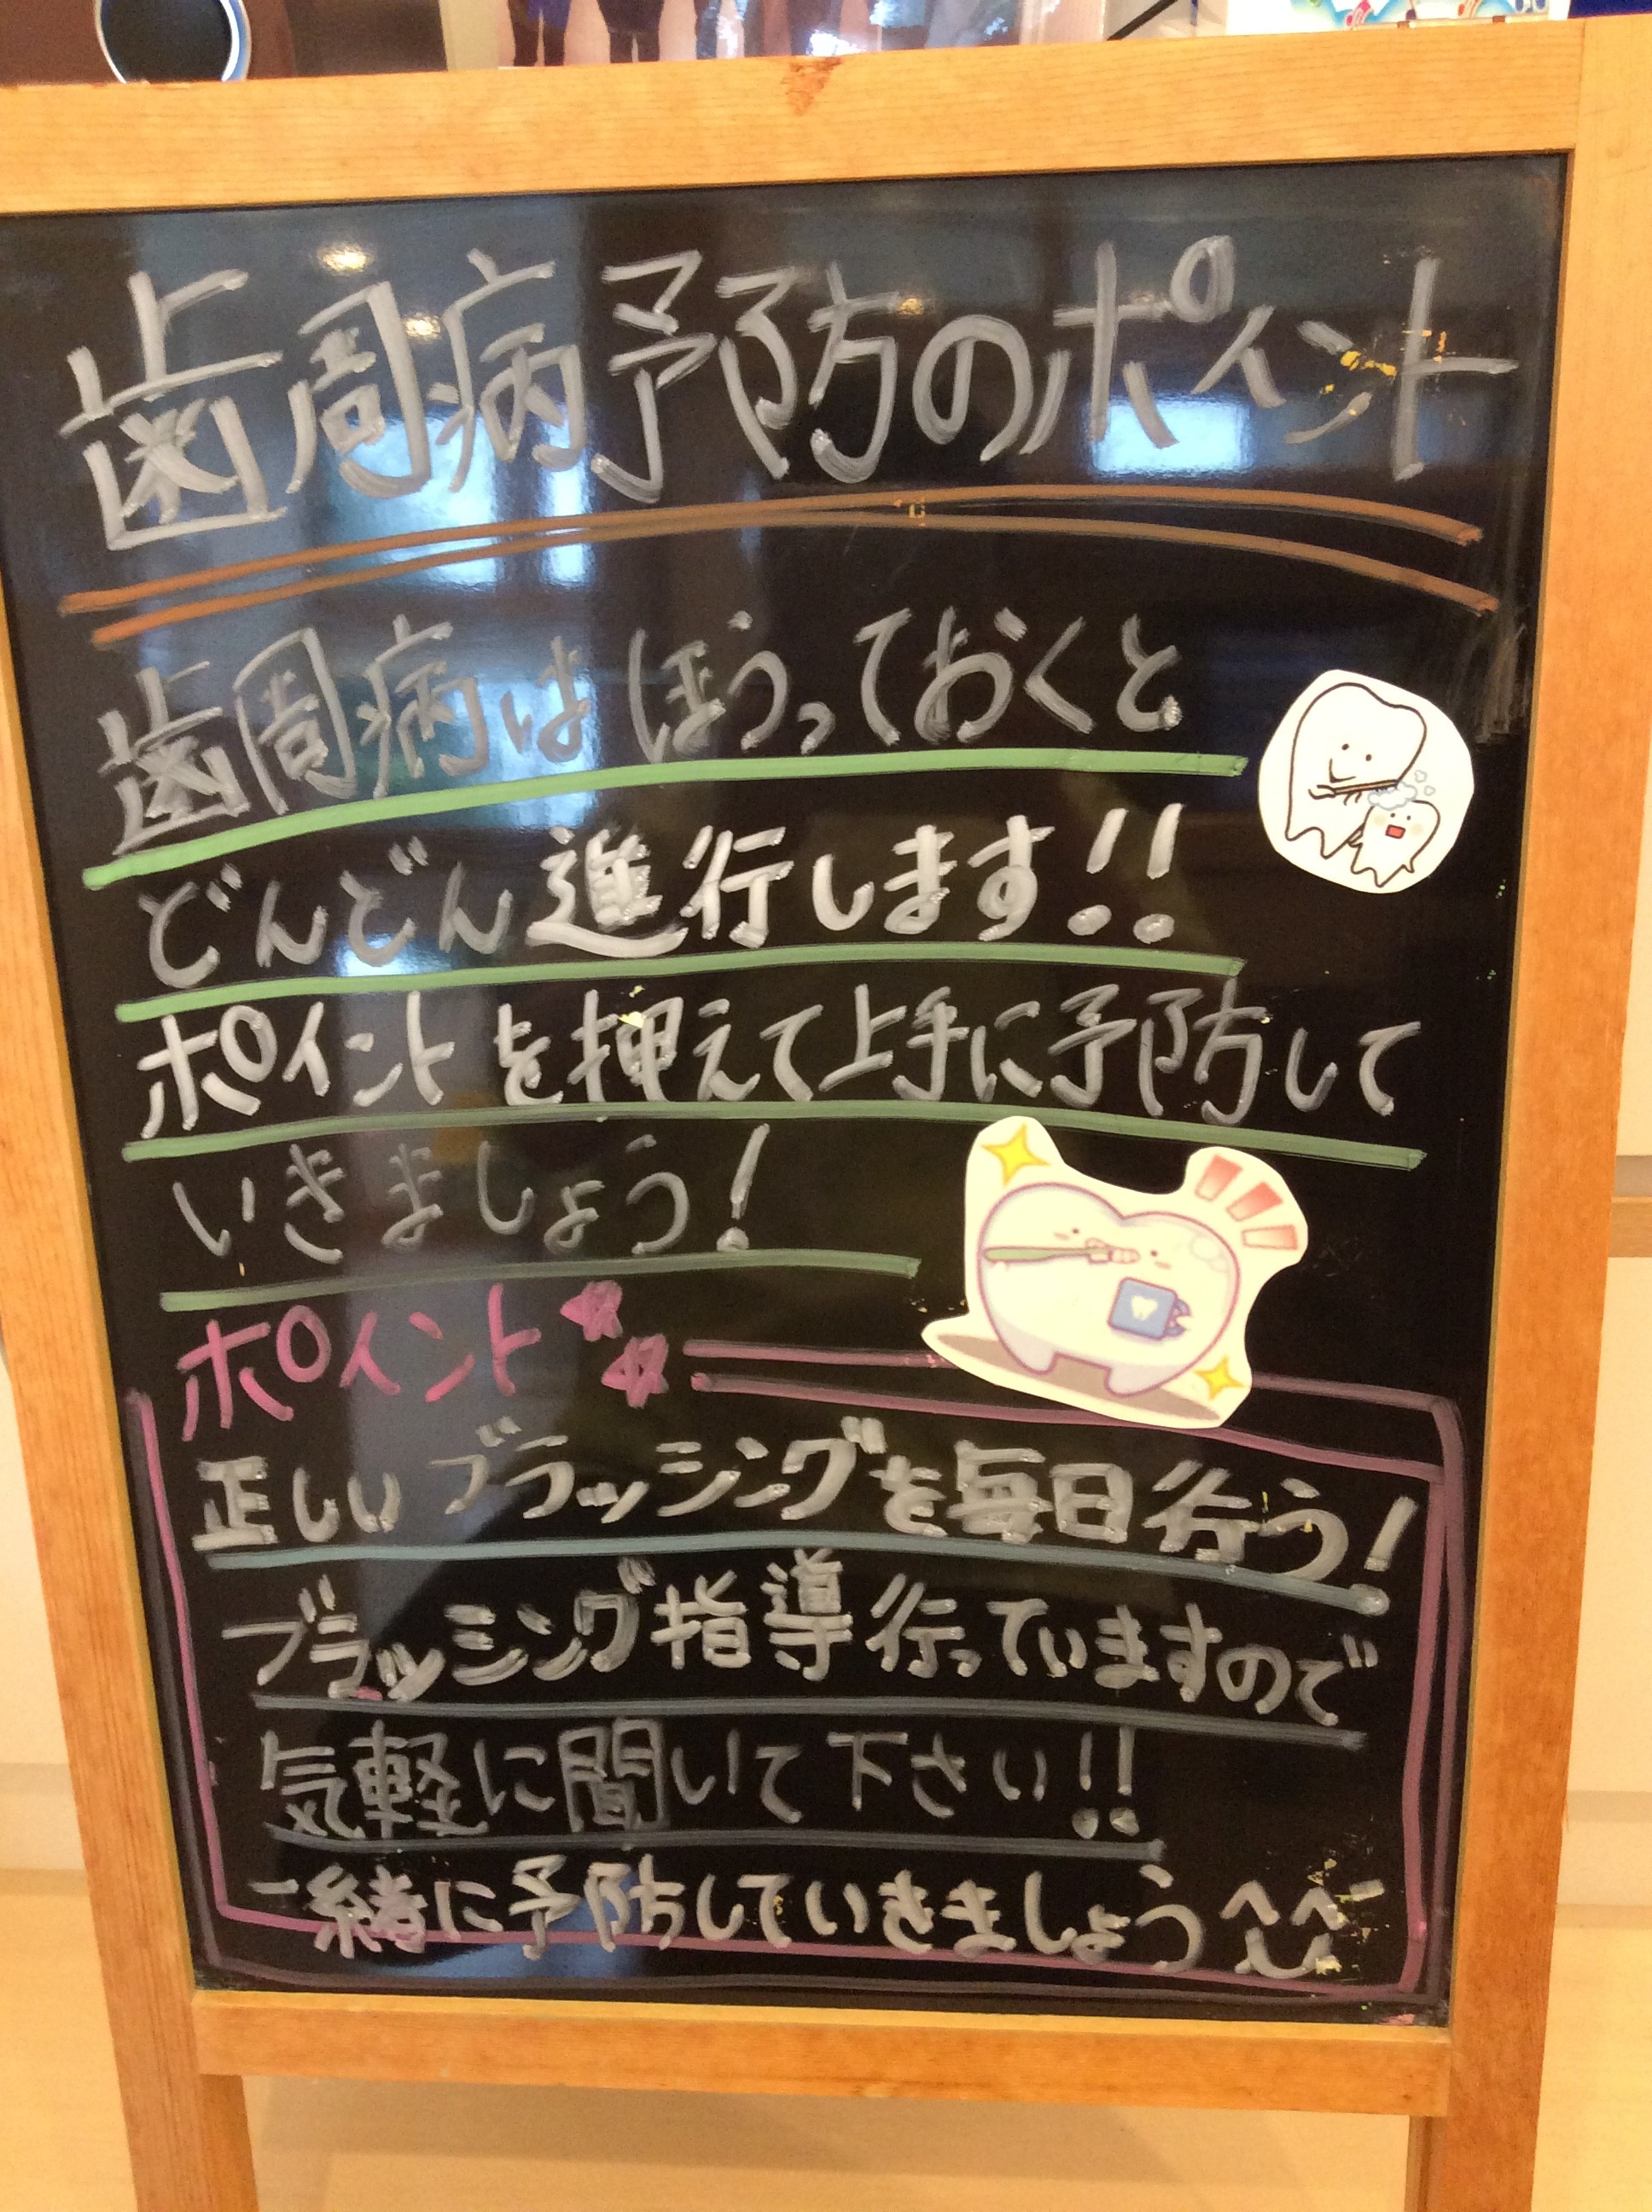 歯周病予防のポイント
歯周病はほうっておくと
どんどん進行します!!
ポイントを押えて上手に予防して
いきましょう!
ポイント
正しいブラッシングを毎日行う!
ブラッシング指導行っていますので
気軽に聞いて下さい!!
一緒に予防していきましょう^^